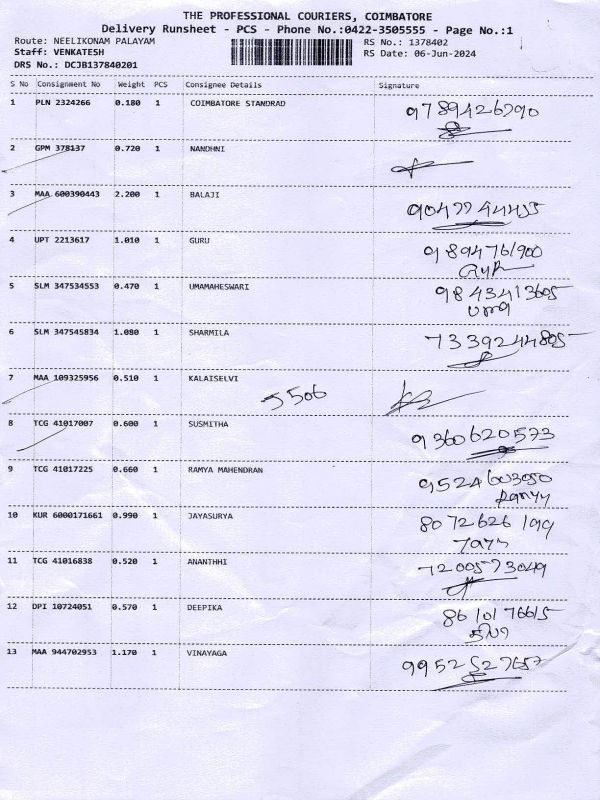 THE PROFESSIONAL COURIERS, COIMBATORE
Delivery Runsheet - PCS - Phone No.:0422-3505555 - Page No.:1
Route: NEELIKONAM PALAYAM RS No.: 1378402
Staff: VENKATESH RS Date: 06-Jun-2024
DRS No.: DCJB137840201
S No Consignment No Weight PCS Consignee Details Signature
1 PLN 2324266 0.180 1 COIMBATORE STANDRAD 9789426790
2 GPM 378137 0.720 1 NANDHNI
3 MAA 600390443 2.200 1 BALAJI 9047744455
4 UPT 2213617 1.010 1 GURU 9894761900
Guru
5 SLM 347534553 0.470 1 UMAMAHESWARI 9843413605
uma
6 SLM 347545834 1.080 1 SHARMILA 7339244805
7 MAA 109325956 0.510 1 KALAISELVI 5506
8 TCG 41017007 0.600 1 SUSMITHA 9360620573
9 TCG 41017225 0.660 1 RAMYA MAHENDRAN 9524603050
10 KUR 6000171661 0.990 1 JAYASURYA 8072626199
11 TCG 41016838 0.520 1 ANANTHHI 7200573049
12 DPI 10724051 0.570 1 DEEPIKA 8610176615
13 MAA 944702953 1.170 1 VINAYAGA 9952527657